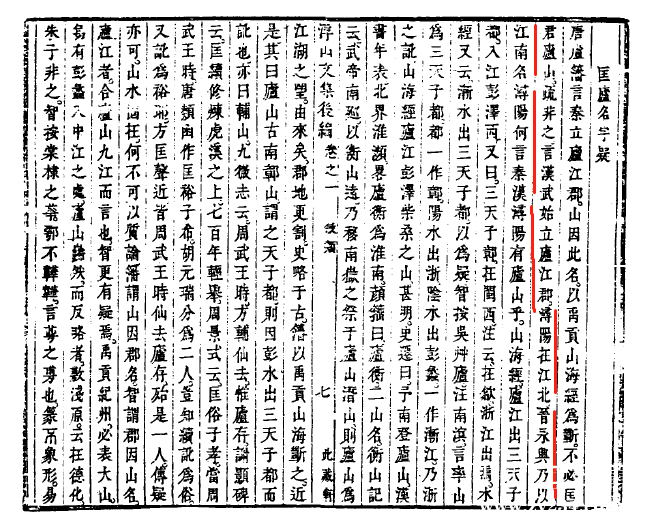 匡廬名字疑
唐盧潘言秦立廬江郡山因此名以禹貢山海經為斷不必匡
君廬山疏非之言漢武始立廬江郡潯陽在江北晉永興乃以
江南名潯陽何言秦漢潯陽有廬山乎山海經廬江出三天子
都入江彭澤西又曰三天子鄣在閩西注云在歙浙江出焉水
經又云漸水出三天子都以為疑智按吳艸廬汪南溟言率山
為三天子都都一作鄣陽水出浙陰水出彭蠡一作漸江乃浙
之訛山海經廬江彭澤柴桑之山甚明史遷曰予南登廬山漢
書年表北界淮瀕界廬衡為淮南顏籀曰廬衡二山名衡山記
云武帝南巡以衡山遠乃移南嶽之祭于廬山灊山則廬山為
浮山文集後編 卷之一 七 此藏軒
江湖之望由來矣郡地更割史略于古潘以禹貢山海斷之近
是其曰廬山古南鄣山謂之天子都則因彭水出三天子都而
訛也亦曰輔山九微志云周武王時方輔仙去惟廬存諭顗碑
云匡續修煉虎溪之上七百年輕舉周景式云匡俗子孝當周
武王時唐類函作匡裕子希胡元瑞分為二人豈知續訛為俗
又訛為裕耳方匡聲近皆周武王時仙去廬存始是一人傳疑
亦可山水固在何不可以質論潘謂山因郡名智謂郡因山名
廬江者合廬山九江而言也智更有疑焉禹貢紀州必表大山
名有彭蠡大中江之處廬山巋然而反略者敷淺原云在德化
朱子非之智按棠棣之鄂不韡韡言萼之也篆象形易